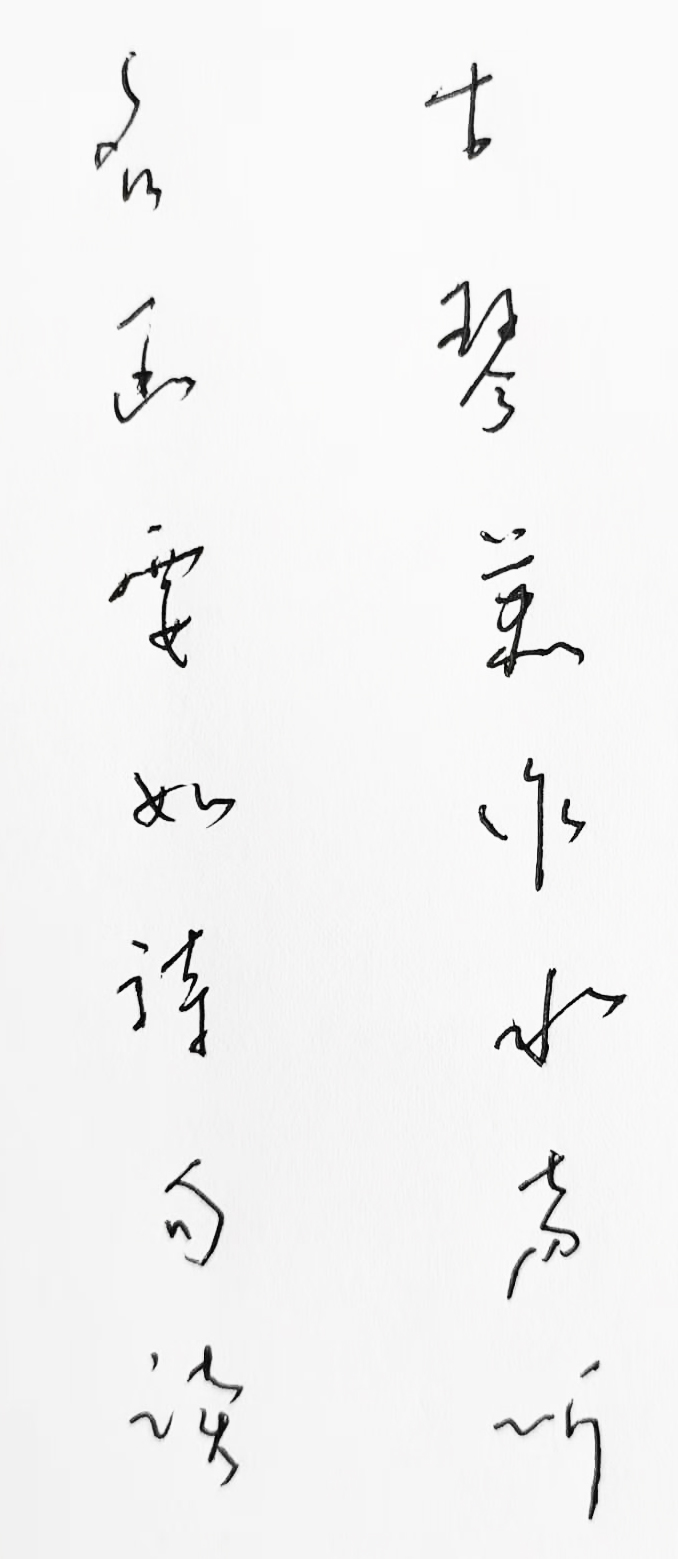 古琴兼作水声听
名画要如诗句读